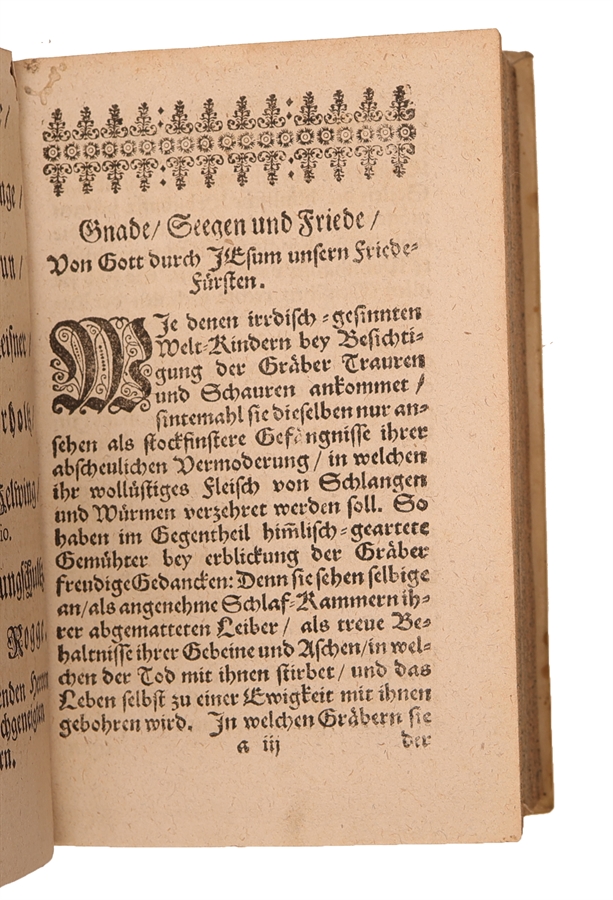 e/
nge/
un/
eisner/
rholtz/
Kelwing/
io.
ungschultz
Rogge.
enden Herren
chgeneigten
en.
Gnade/ Seegen und Friede/
Von Gott durch JEsum unsern Friede-
Fürsten.
WJe denen irrdisch-gesinnten
Welt-Kindern bey Besichti-
gung der Gräber Trauren
und Schauren ankommet/
sintemahl sie dieselben nur an-
sehen als stockfinstere Gefängnisse ihrer
abscheulichen Vermoderung/ in welchen
ihr wollüstiges Fleisch von Schlangen
und Würmen verzehret werden soll. So
haben im Gegentheil him̃lisch-geartete
Gemühter bey erblickung der Gräber
freudige Gedancken: Denn sie sehen selbige
an/ als angenehme Schlaf-Kammern ih-
rer abgematteten Leiber/ als treue Be-
haltnisse ihrer Gebeine und Aschen/ in wel-
chen der Tod mit ihnen stirbet/ und das
Leben selbst zu einer Ewigkeit mit ihnen
gebohren wird. In welchen Gräbern sie
a iij
der